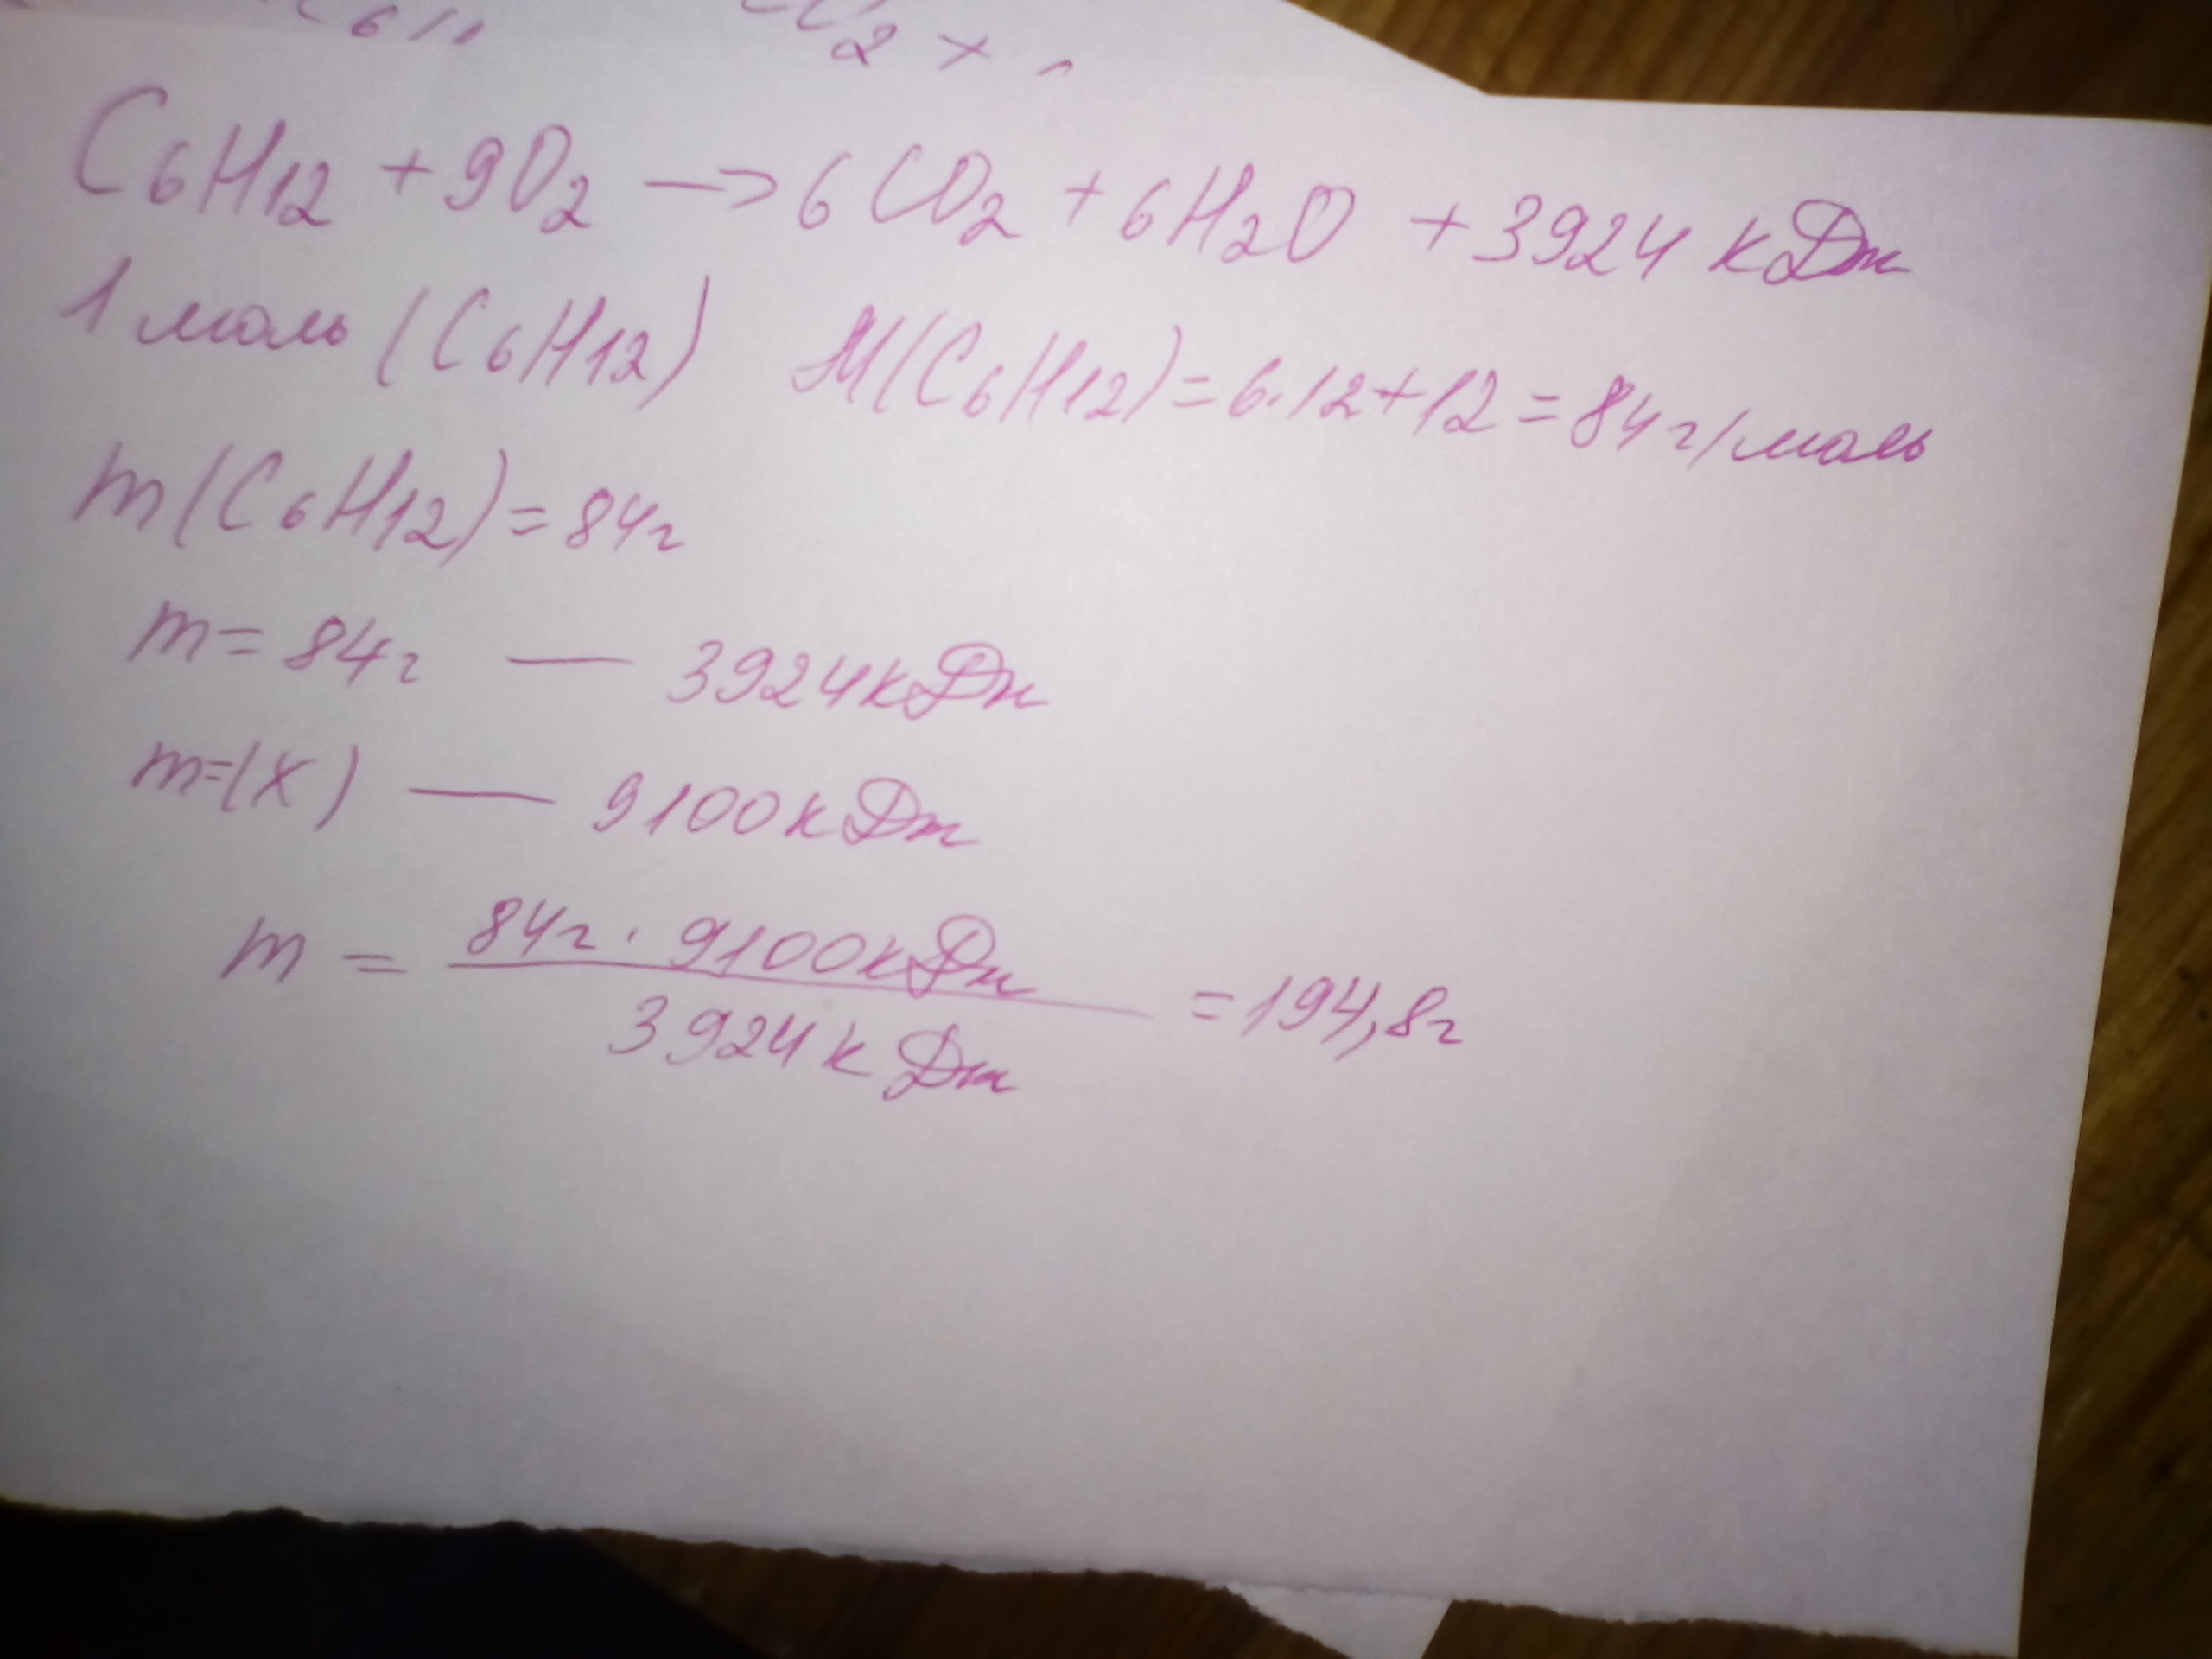 C₆H₁₂ + 9O₂ → 6CO₂ + 6H₂O + 3924 кДж
1 моль (C₆H₁₂) M(C₆H₁₂) = 6·12+12 = 84 г/моль
m(C₆H₁₂) = 84г
m = 84г — 3924кДж
m=(X) — 9100кДж
m = 84г · 9100кДж / 3924кДж = 194,8г